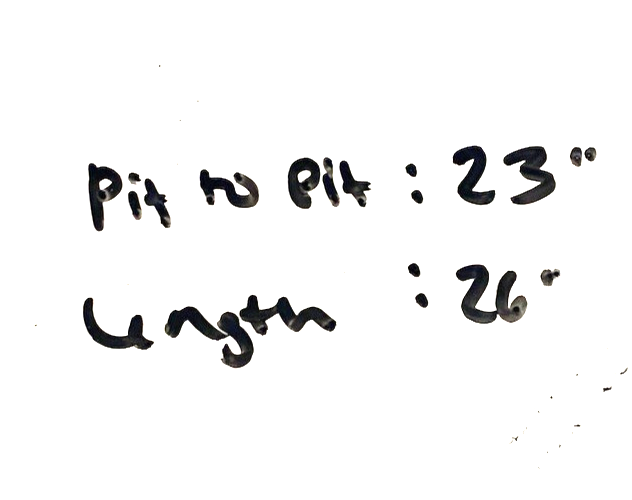 Pit to Pit : 23"
Length : 26"